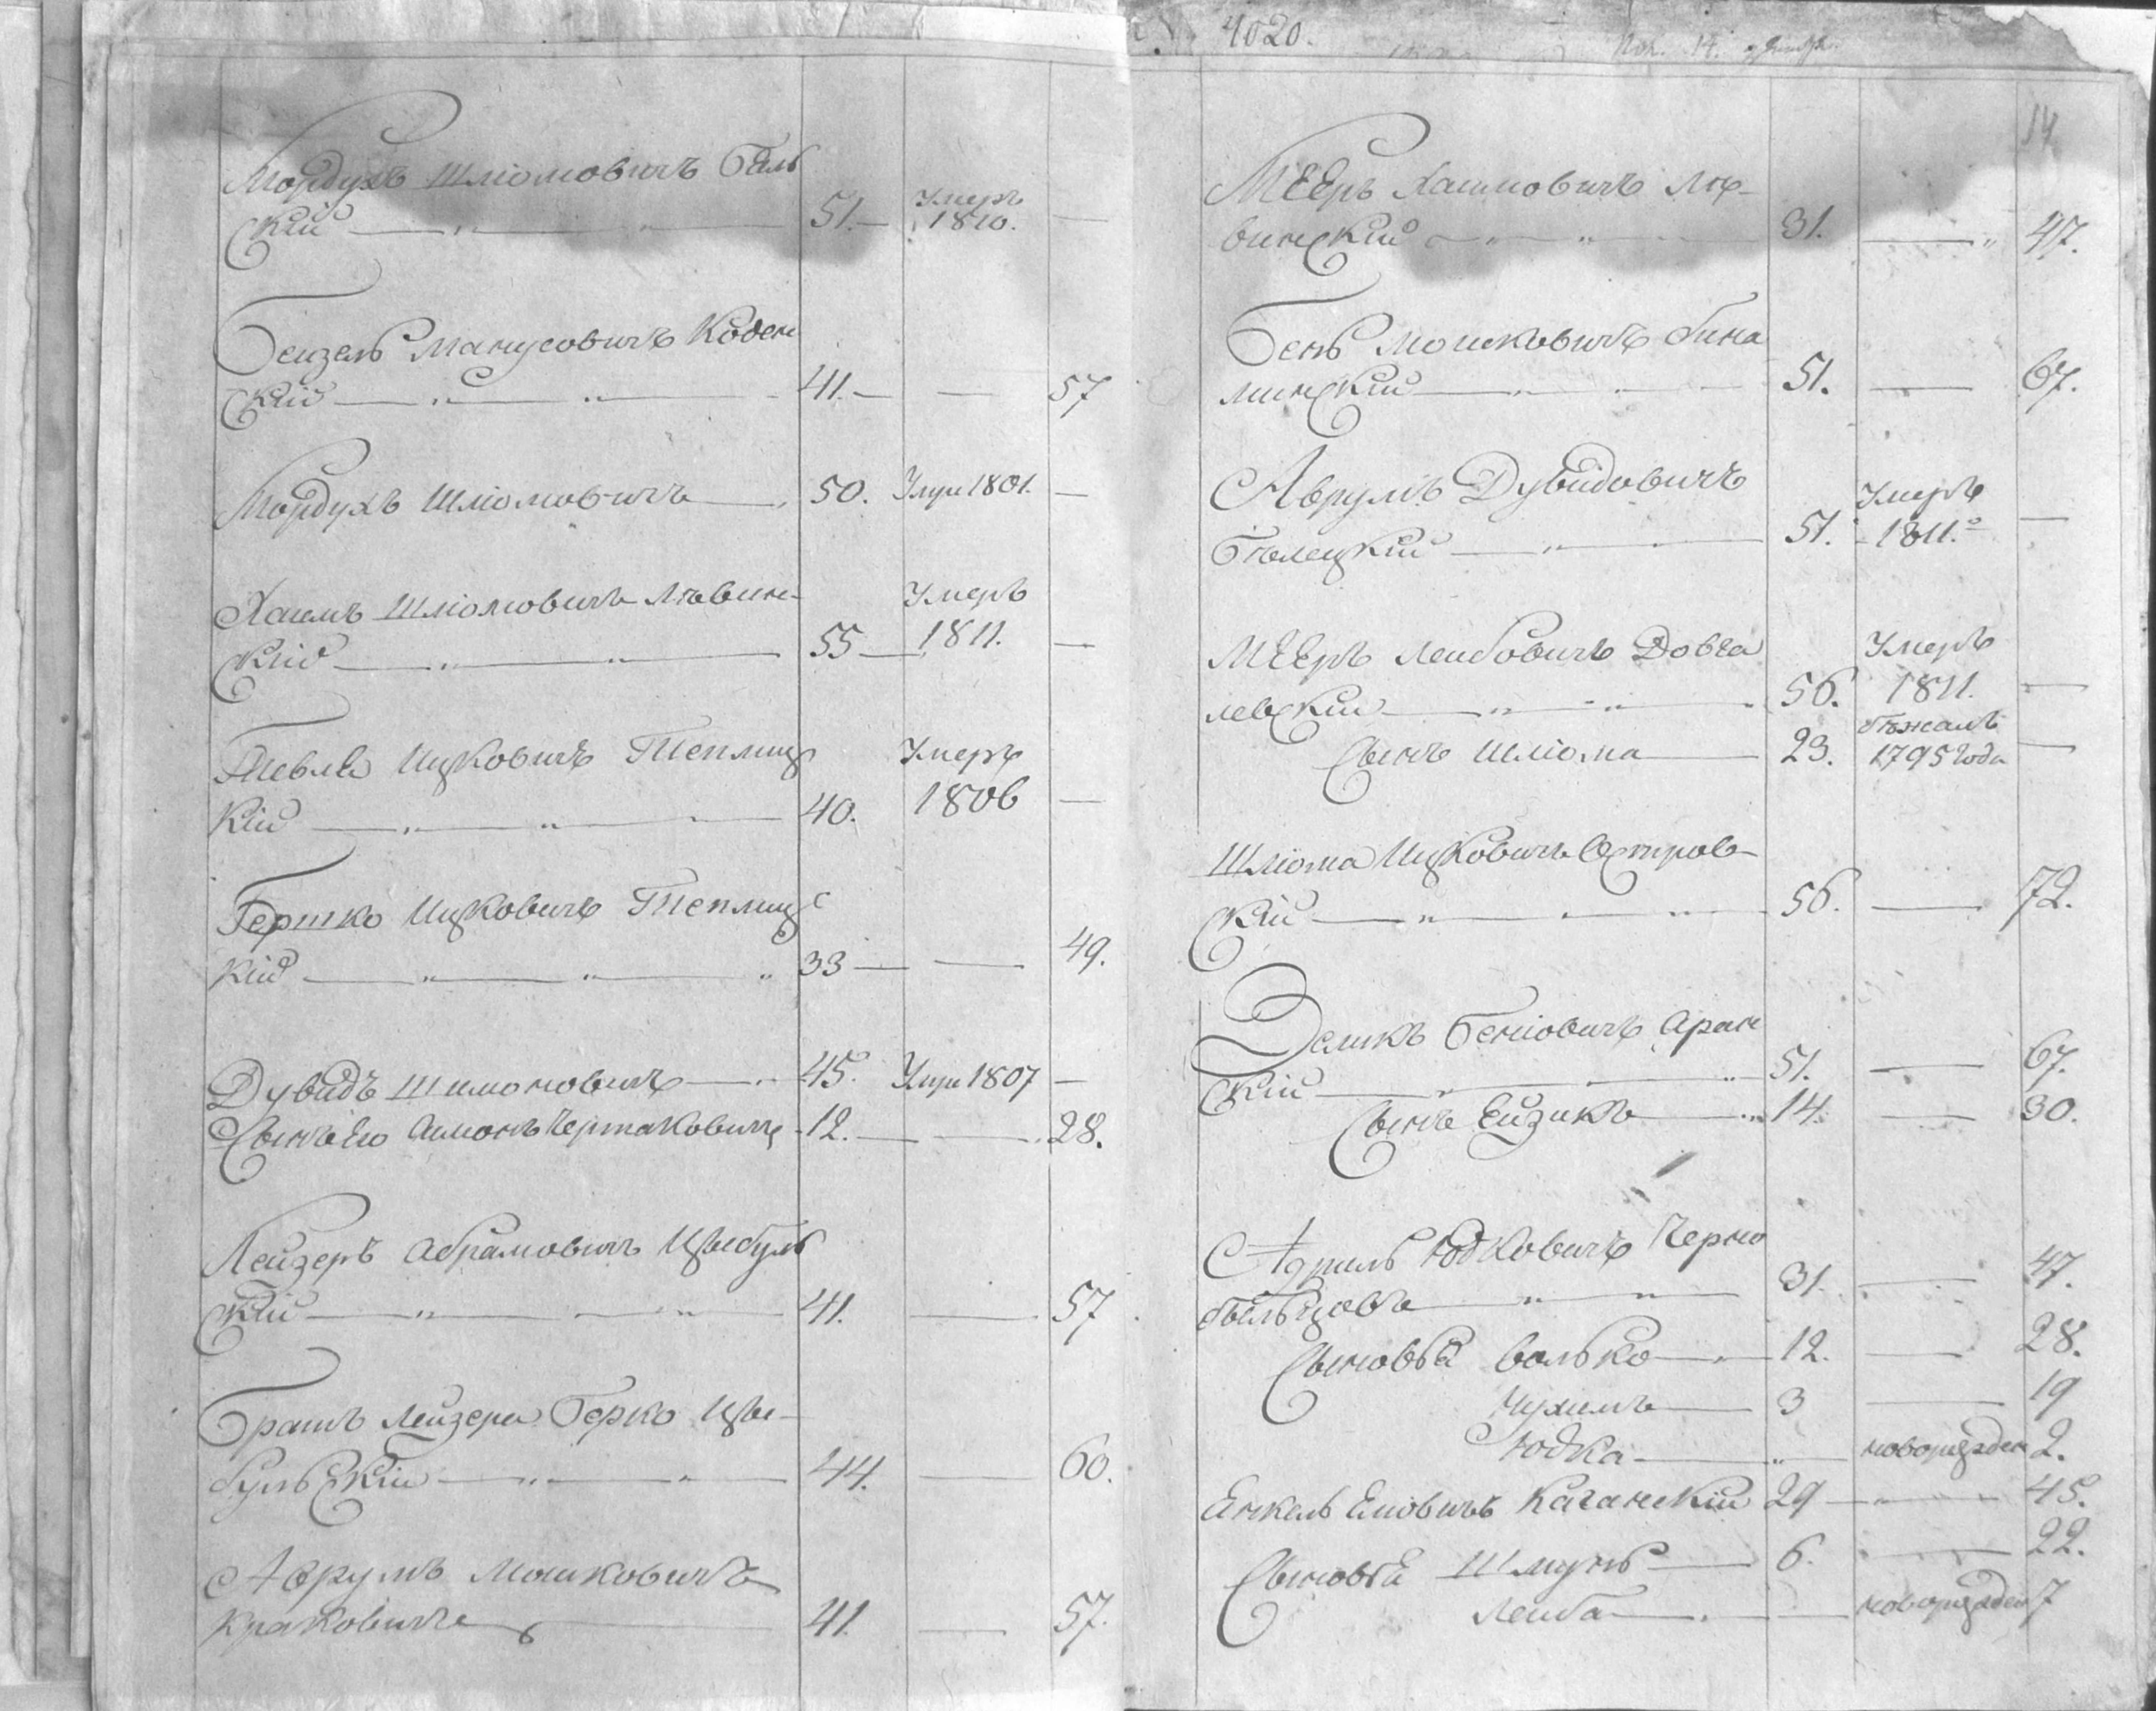 Мордухъ Шліомовичъ Баль
скій 51. Умеръ 1810.
Бейзель Манусовичъ Коден
скій 41. 57
Мордухъ Шліомовичъ 50. Умре 1801.
Хаемъ Шліомовичъ Лѣвин-
скій 55 Умеръ 1811.
Тевля Ицковичъ Теплиц
кій 40. Умеръ 1806
Гершко Ицковичъ Теплиц
кій 33 49.
Дувидъ Шимоновичъ 45. Умре 1807
Сынъ Его Симонъ Чертаковичъ 12. 28.
Лейзеръ Абрамовичъ Цыбуль
скій 41. 57
Братъ Лейзера Берко Цы-
бульскій 44. 60.
Аврумъ Мошковичъ
Краковичъ 41. 57.
4020.
14
Мееръ Хаимовичъ Лѣ-
винскій 31. 47.
Бень Мошковичъ
минскій 51. 67.
Аврумъ Дувидовичъ
Бѣлецкій 51. Умеръ 1811.
Мееръ Лейбовичъ Довга
левскій 56. Умеръ 1811.
Сынъ Шліома 23. бѣжалъ 1795 года
Шліома Ицковичъ Остров-
скій 56. 72.
Зеликъ Беніовичъ Аран
скій 51. 67.
Сынъ Ейзикъ 14. 30.
Юдковичъ Черно
быльцовъ 31. 47.
Сыновья Волько 12. 28.
Нухимъ 3 19
Юдка новорожден 2.
Енкель Еліовичъ Каганскій 29 45.
Сыновья Шмуль 6. 22.
Лейба новорожден 7